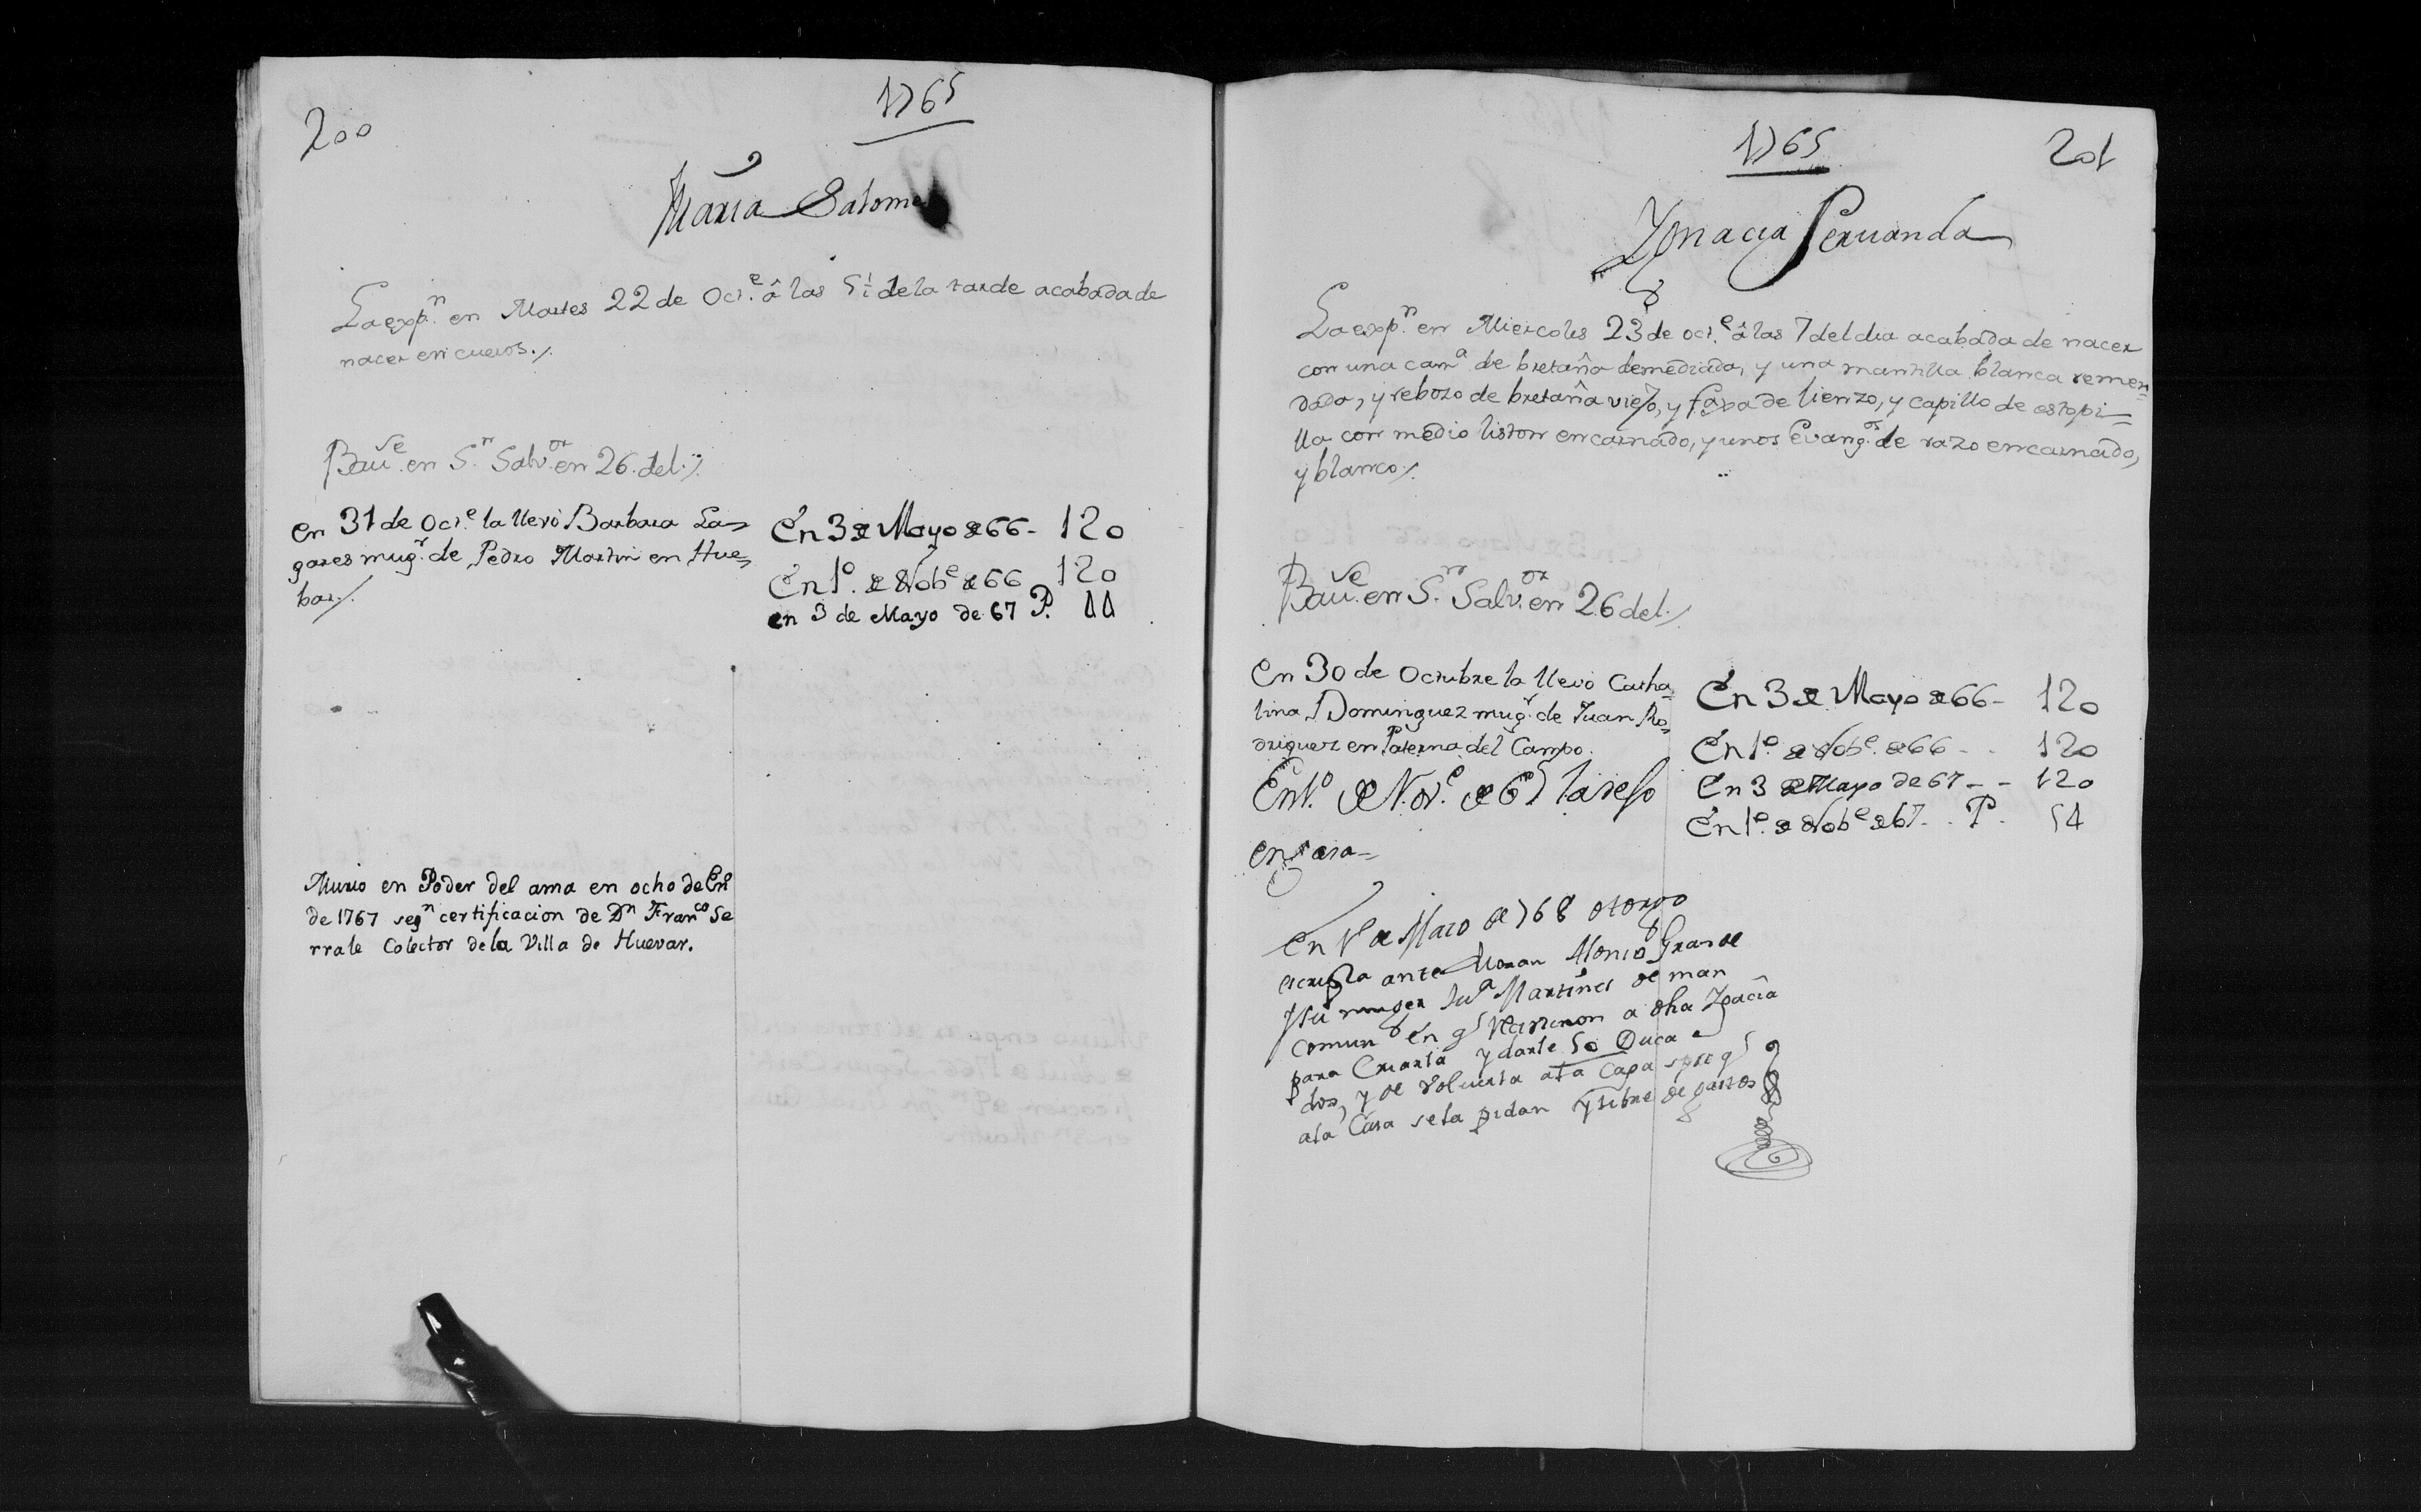 200
1765
Maria Salome
La exp.n en Martes 22 de Oct.e â las 5½ de la tarde acabada de
nacer en cueros./.
Bau.se en S.n Salv.or en 26. del./.
en 31 de Oct.e la llevó Barbara La=
gares mug.r de Pedro Martin en Hue=
bar./.
En 3 de Mayo de 66 - 120
En 1.o de Nob.e de 66 120
en 3 de Mayo de 67 P. 44
Murio en Poder del ama en ocho de En.o
de 1767 seg.n certificacion de D.n Fran.co Se
rrale Colector de la Villa de Huevar.
1765
201
Ignacia Servanda
La exp.n en Miercoles 23 de oct.e â las 7 del dia acabada de nacer
con una cam.a de bretaña demediada, y una mantilla blanca remen=
dada, y rebozo de bretaña viejo, y faxa de lienzo, y capillo de estopi=
lla con medio liston encarnado, y unos Evang.os de razo encarnado,
y blanco./.
Bau.se en S.n Salv.or en 26 del./
En 30 de Octubre la llevó Catha=
lina Dominguez mug.r de Juan Ro=
driguez en Paterna del Campo.
En 1.o de Nov.e de 67 la dejo
en Casa=
En 3 de Mayo de 66 - 120
En 1.o de Nob.e de 66 - - 120
En 3 de Mayo de 67 - - 120
En 1.o de Nob.e de 67. . P. 54
En 1.o de Marzo de 768 otorgo
escrip.ra ante Moran Alonso Grande
y su muger Ju.a Martines de man
comun en q.e recivieron a dha Ignacia
para Criarla y darle 50 Duca
dos, y de volverla a la Casa spre q.e
a la Casa se la pidan y libre de gastos